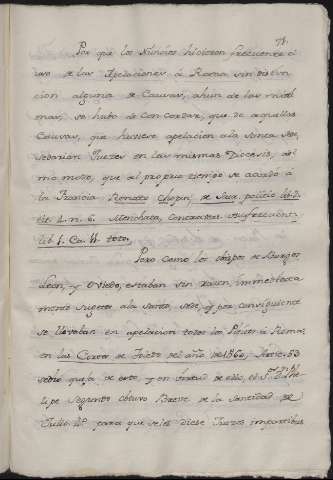 71.
Por que los Nuncios hicieron frecuente el
uso de las Apelaciones á Roma sin distin
cion alguna de Causas, ahun de las mini
mas, se hubo de Concordar, que de aquellas
Causas, que hubiese apelacion a la Santa Sede
se darian Jueces en las mismas Diocesis,
mo modo, que al proprio tiempo se acordó á
la Francia Renato Chopin, de Sacr. politic lib. 2.
tit. 4. n. 6. Menchaca, Controvers
lib. 1. Ca. 41. toto.
Pero como los obispos de Burgos
Leon, y Oviedo, estaban sin raxon immediata
mente sugetos ala Santa, Sede, y por consiguiente
se llevaban en apelacion todos los Pleitos á Roma,
en las Cortes de Toledo del año de 1560,
se dió quexa de esto, y en virtud de ello, el S.or D.n Phe
lipe Segundo obtuvo Breve de la Santidad de
para que seles diese Jueces impartibus